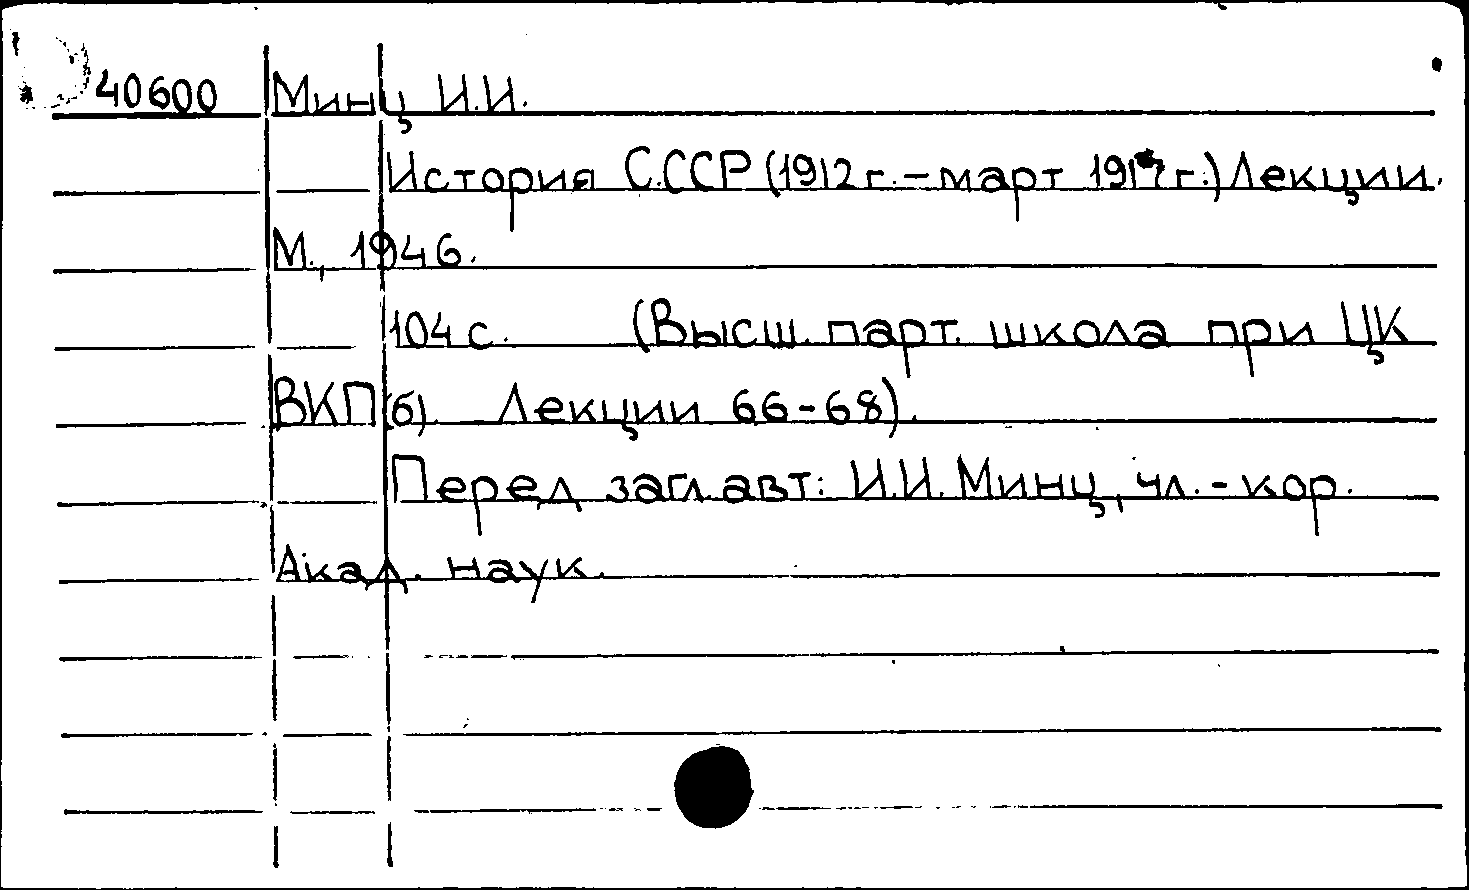 40600 Минц И.И.
История С.ССР (1912 г. – март 1917 г.) Лекции.
М., 1946.
104 с. (Высш. парт. школа при ЦК
ВКП(б). Лекции 66-68).
Перед загл. авт: И.И. Минц, чл.-кор.
Акад. наук.